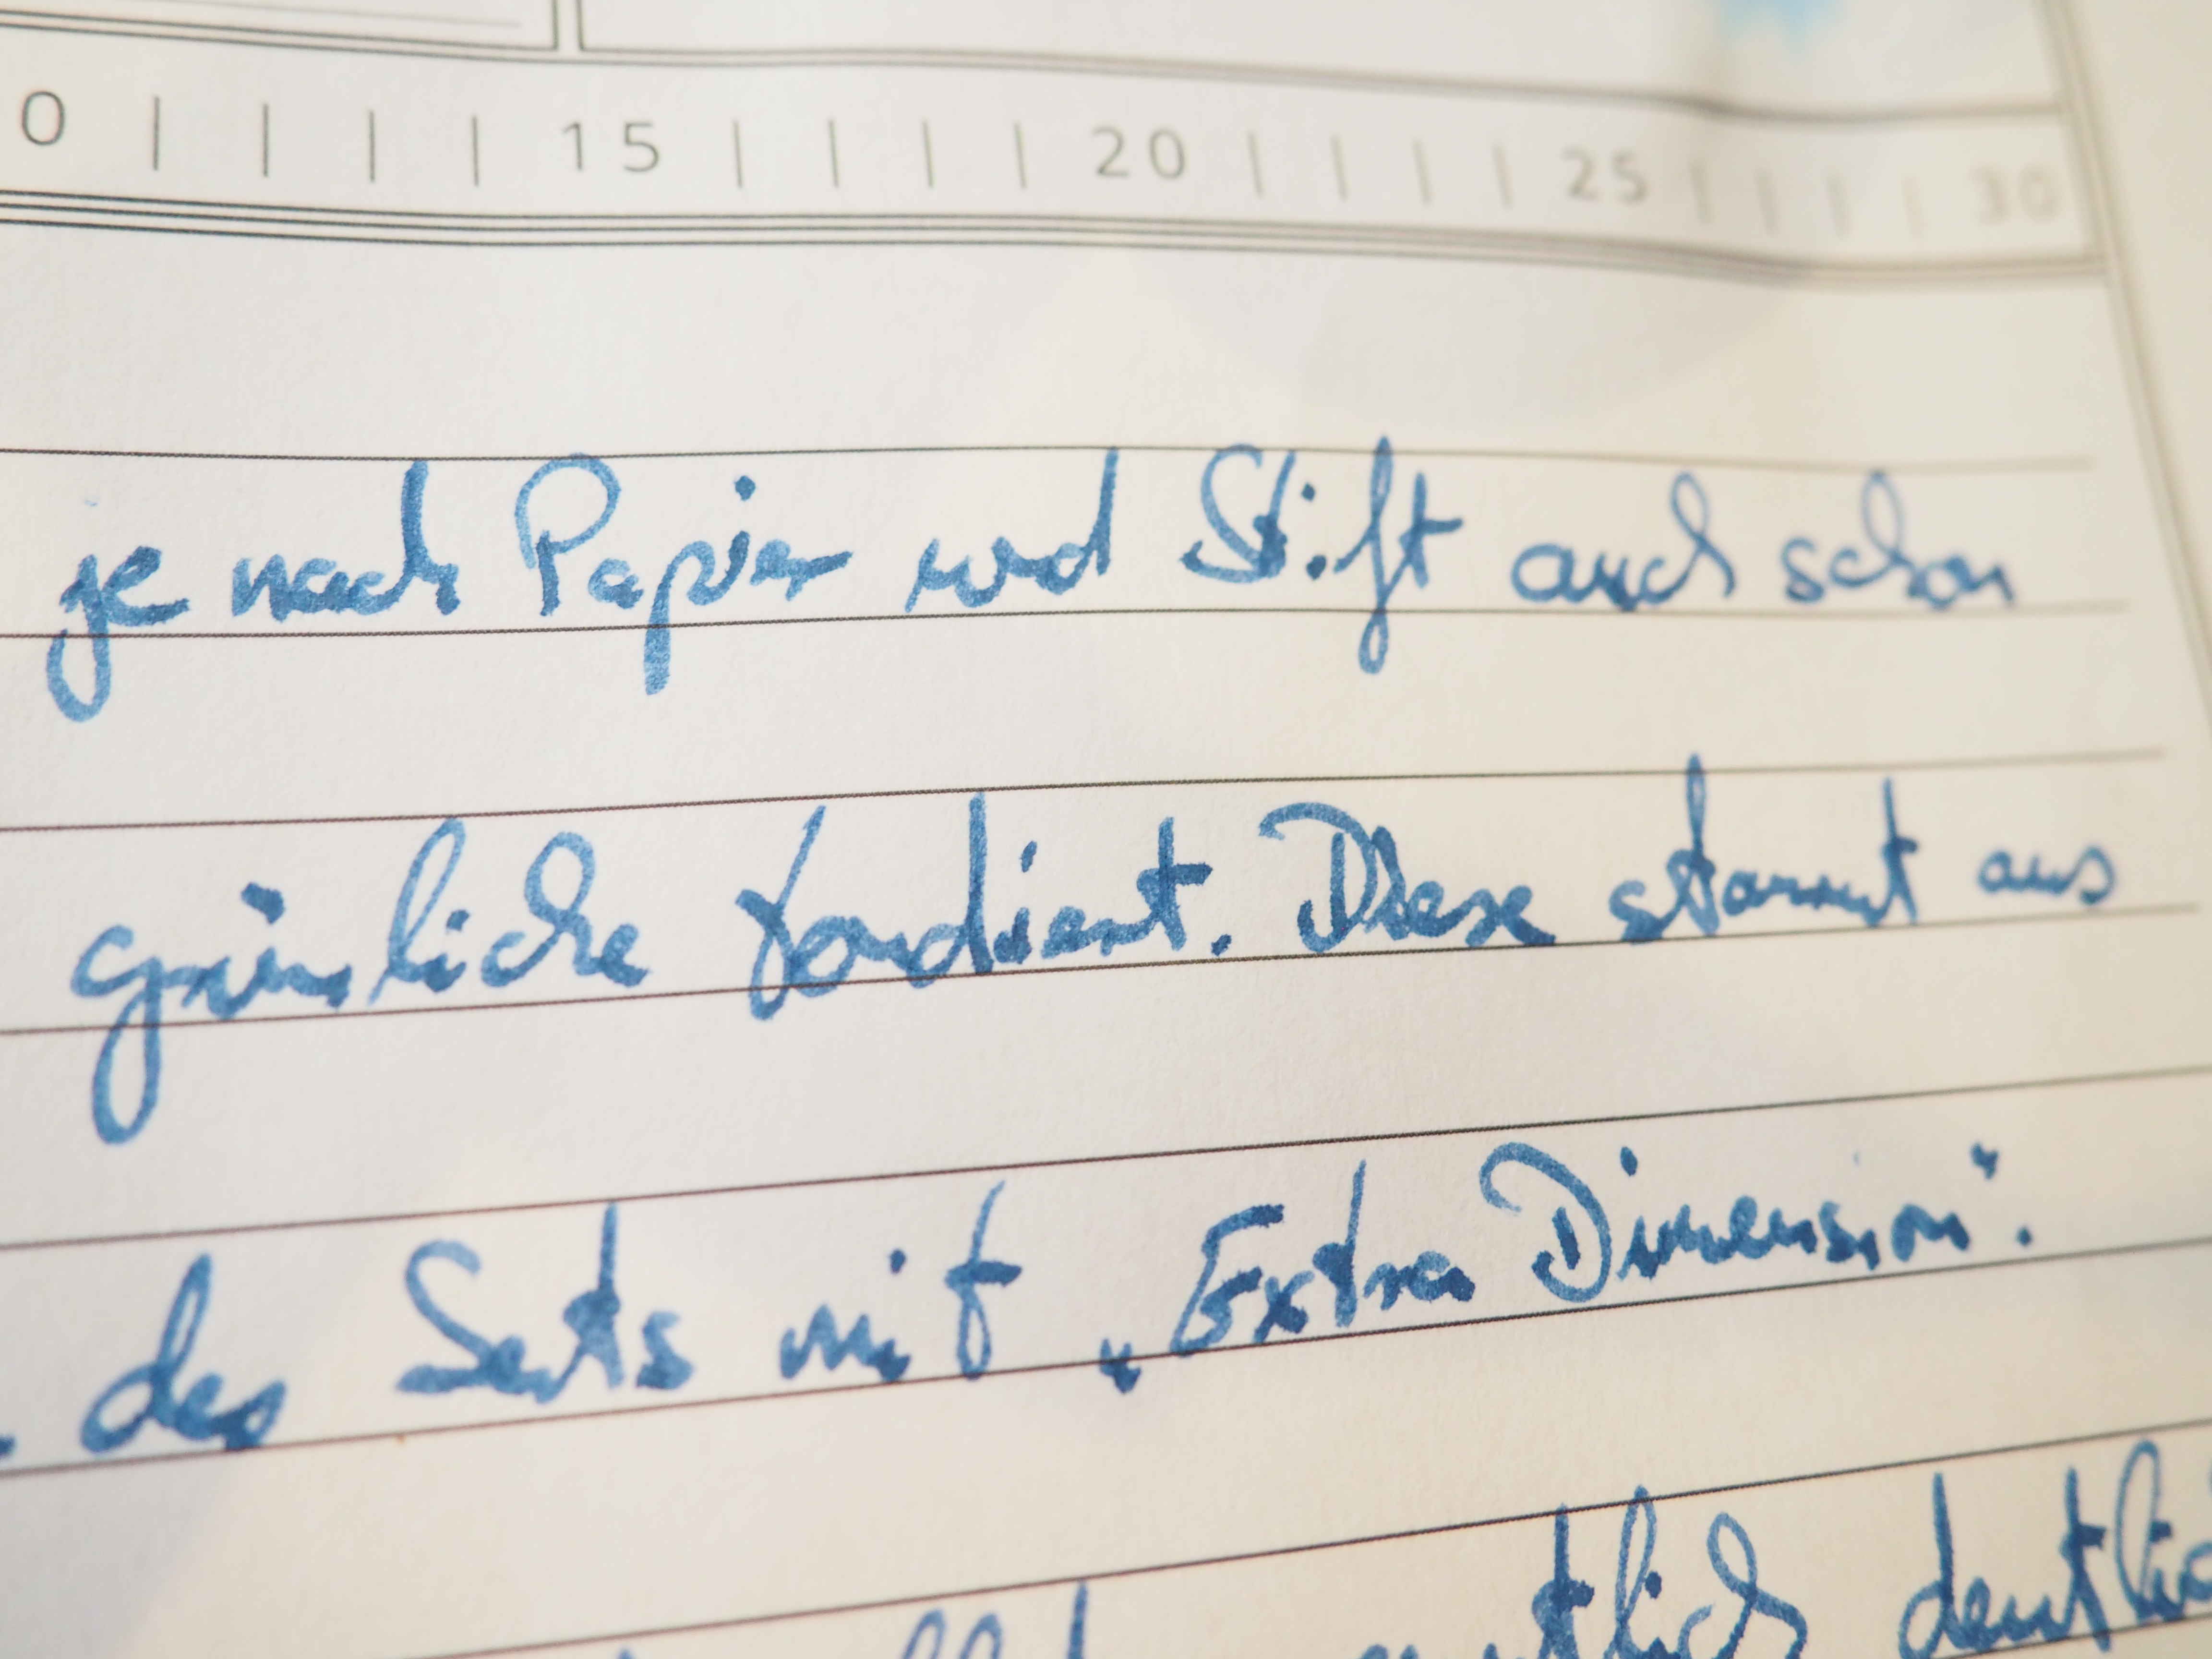 0 | | | | 15 | | | | 20 | | | | 25 | | | | 30
je nach Papier und Stift auch schon
grünliche tendiert. Diese stammt aus
des Sets mit „Extra Dimension“.